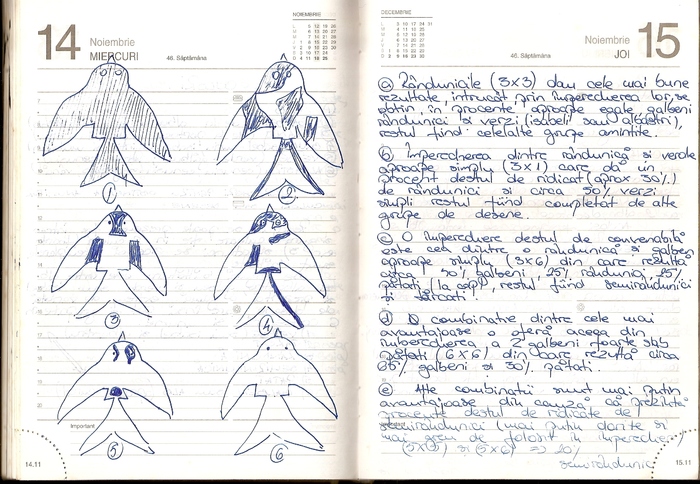 14
Noiembrie
MIERCURI
46. Săptămâna
NOIEMBRIE
1
2
3
4
5
6
Important
14.11
DECEMBRIE
46. Săptămâna
Noiembrie
JOI
15
a) Rândunicile (3x3) dau cele mai bune
rezultate, întrucât prin împerecherea lor se
obțin, în procente aproape egale galbeni
rândunici și verzi (isabeli sau albaștri),
restul fiind celelalte grupe amintite.
b) Împerecherea dintre rândunică și verde
aproape simplu (3x1) care dă un
procent destul de ridicat (aprox. 30%)
de rândunici și circa 50% verzi
simpli restul fiind completat de alte
grupe de desene.
c) O împerechere destul de convenabilă
este cea dintre o rândunică și galben
aproape simplu (3x6) din care rezultă
circa 50% galbeni, 25% rândunici, 25%
pătați (la cap), restul fiind semirândunici
și
d) O combinație dintre cele mai
avantajoase o oferă aceea din
împerecherea a 2 galbeni foarte slab
pătați (6x6) din care rezultă circa
65% galbeni și 30% pătați.
e) Alte combinații sunt mai puțin
avantajoase din cauză că prezintă
procente destul de ridicate de
semirândunici (mai puțin dorite și
mai greu de folosit în împerecheri
(5x5) și (5x6) => 20%
semirândunici
15.11